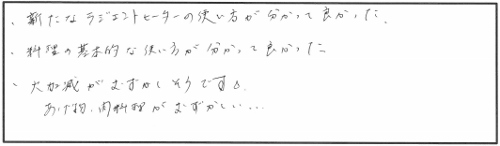 ・新たなラジエントヒーターの使い方が分かって良かった。
・料理の基本的な使い方が分かって良かった。
・火加減がむずかしそうです。
あげ物、肉料理がむずかしい…